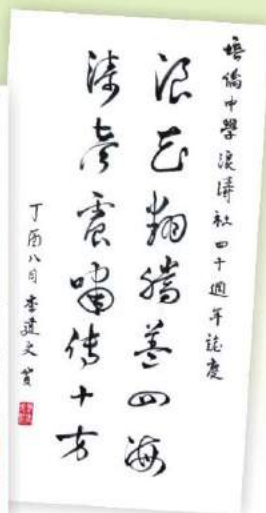 培僑中學浪濤社四十週年誌慶
浪花翔騰蓋四海
濤聲震嘯傳十方
丁酉八月 李文賀